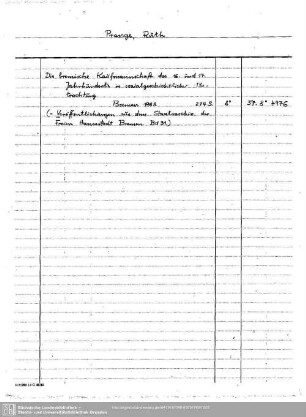 Prange, Ruth
Die bremische Kaufmannschaft des 16. und 17.
Jahrhunderts in sozialgeschichtlicher Be-
trachtung
Bremen 1963 274 S. 8° 37. 8° 4776
(= Veröffentlichungen aus dem Staatsarchiv der
Freien Hansestadt Bremen Bd 31)
Sächsische Landesbibliothek -
Staats- und Universitätsbibliothek Dresden